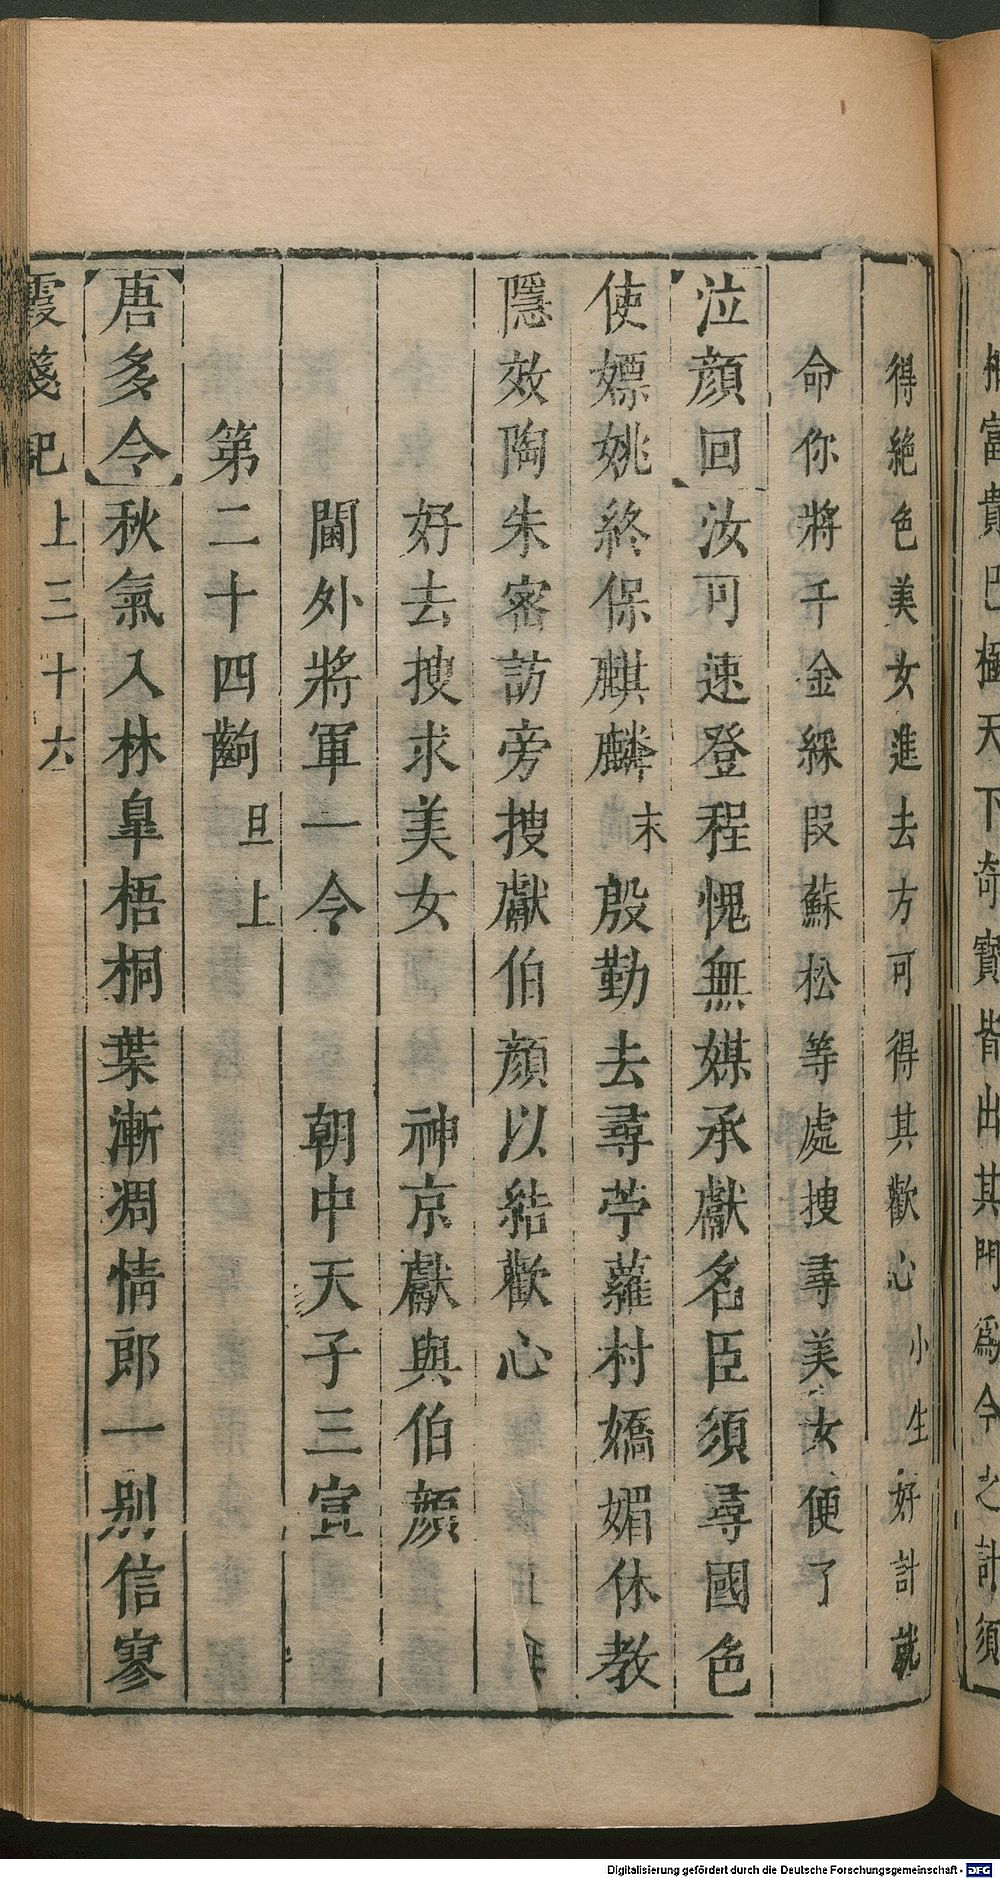 富貴已極天下奇寶皆出其門爲今之計須
得絶色美女進去方可得其歡心 小生 好計就
命你將千金綵叚蘇松等處捜尋美女便了
【泣顔回】汝可速登程愧無媒承獻名臣須尋國色
使嫖姚終保麒麟 末 殷勤去尋苧蘿村嬌媚休教
隱效陶朱密訪旁搜獻伯顔以結歡心
好去搜求美女 神京獻與伯顔
閫外將軍一令 朝中天子三宣
第二十四齣 旦上
【唐多令】秋氣入林臯梧桐葉漸凋情郎一别信寥
霞箋記 上三十六
Digitalisierung gefördert durch die Deutsche Forschungsgemeinschaft - DFG